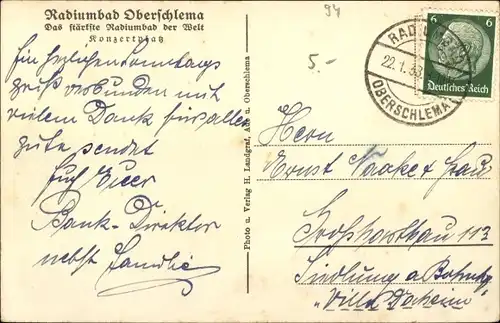 Radiumbad Oberschlema
Das stärkste Radiumbad der Welt
Konzertplatz
94
5.-
Ein herzlichen Sonntags
gruß verbunden mit
vielem Dank für alles
gute sendet
Euch Euer
Bank-Direktor
nebst Familie
Photo u. Verlag H. Landgraf, Aue u. Oberschlema
RADIUMBAD
22.1.38
OBERSCHLEMA
6 6
Deutsches Reich
Herrn
Ernst Naake & Frau
Großharthau 113
Siedlung a Bahnhof
"Villa Daheim"